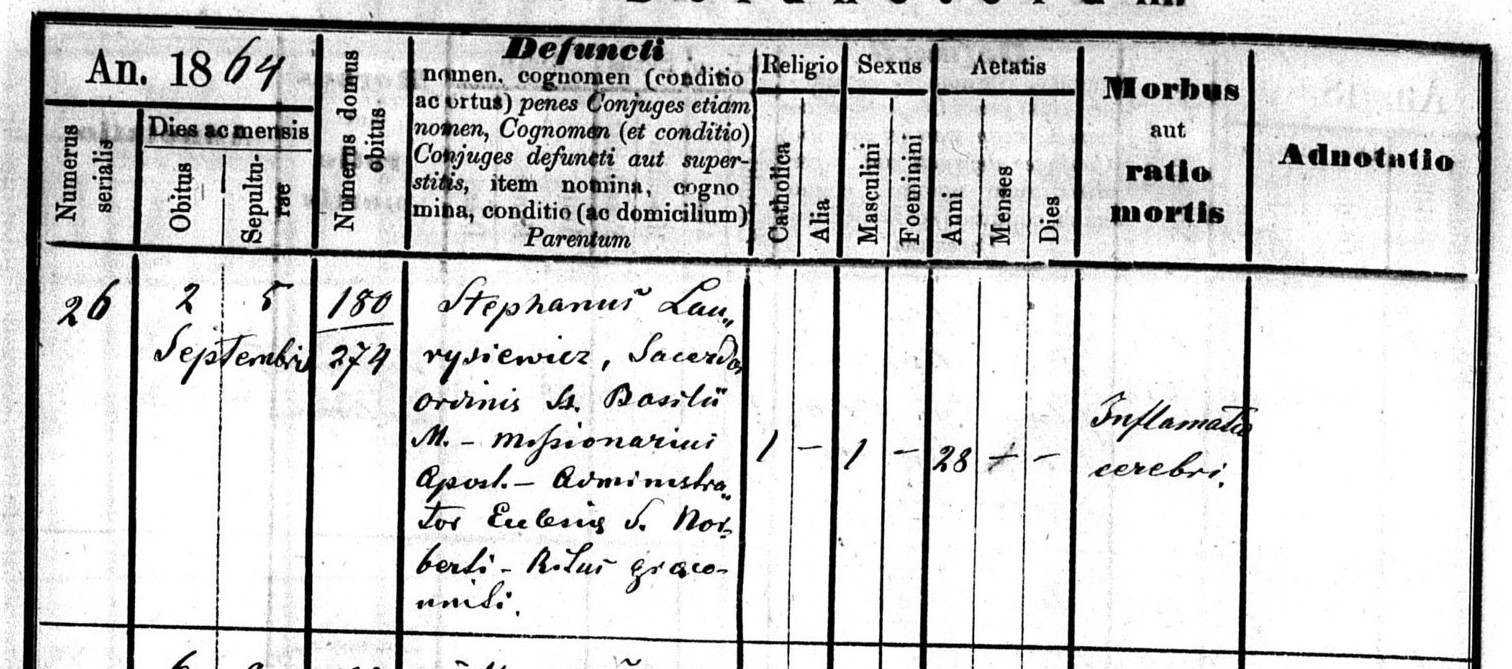 An. 1864
Numerus serialis
Dies ac mensis
Obitus
Sepultu-
rae
Numerus domus
obitus
Defuncti
nomen, cognomen (conditio
ac ortus) penes Conjuges etiam
nomen, Cognomen (et conditio)
Conjuges defuncti aut super-
stitis, item nomina, cogno
mina, conditio (ac domicilium)
Parentum
Religio
Catholica
Alia
Sexus
Masculini
Foeminini
Aetatis
Anni
Menses
Dies
Morbus
aut
ratio
mortis
Adnotatio
26
2 5
Septembris
180
274
Stephanus Lau„
rysiewicz, Sacerdos
ordinis St. Basilii
M. – missionarius
Apost. – Administra„
tor S. Nor„
berti – Ritus graeco-
uniti.
1 – 1 – 28 – –
Inflamatio
cerebri.